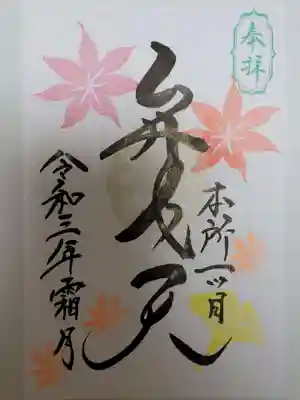 奉拝
本所一ツ目
弁才天
令和三年霜月